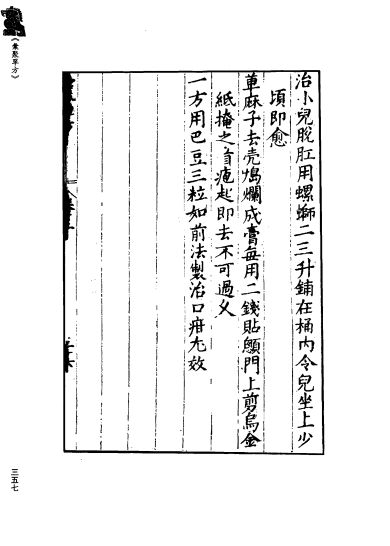 治小兒脫肛用螺螄二三升鋪在桶內令兒坐上少
頃即愈
萆麻子去壳搗爛成膏每用二錢貼顖門上剪烏金
紙掩之首疤起即去不可過久
一方用巴豆三粒如前法製治口疳尤效
《彙聚單方》
三五七